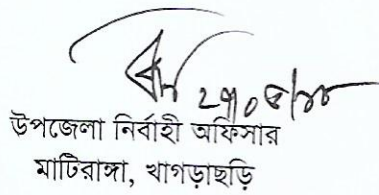 উপজেলা নির্বাহী অফিসার
মাটিরাঙ্গা, খাগড়াছড়ি